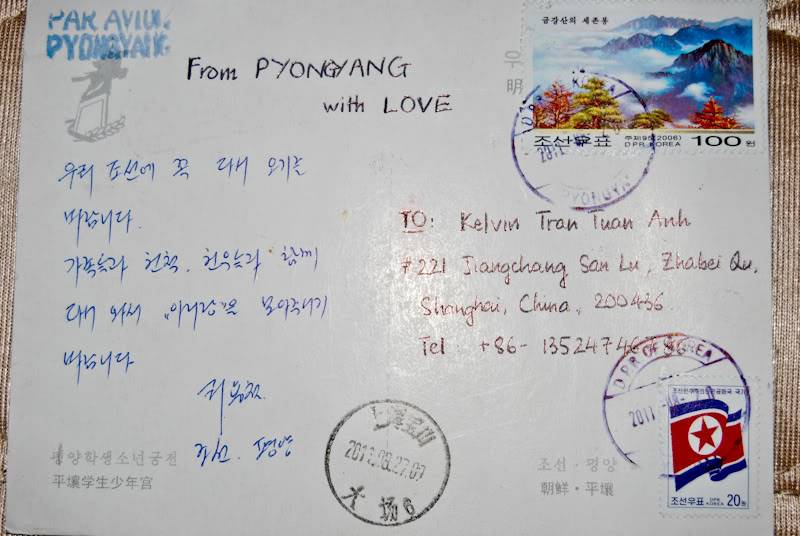 PAR AVION
PYONGYANG
From PYONGYANG
with LOVE
우리 조선에 꼭 다시 오기를
바랍니다.
가족들과 친척, 친우들과 함께
다시 와서 "아리랑"을 보아주시기
바랍니다
조선. 평양
평양학생소년궁전
平壤学生少年宫
금강산의 세존봉
조선우표
주체95(2006)
DPR KOREA
100원
TO: Kelvin Tran Tuan Anh
#221 Jiangchang San Lu, Zhabei Qu,
Shanghai, China, 200436
Tel : +86-
DPR OF KOREA
2011
조선우표
DPR KOREA
20원
조선 · 평양
朝鲜 · 平壤
2011.08.27.07
大场6